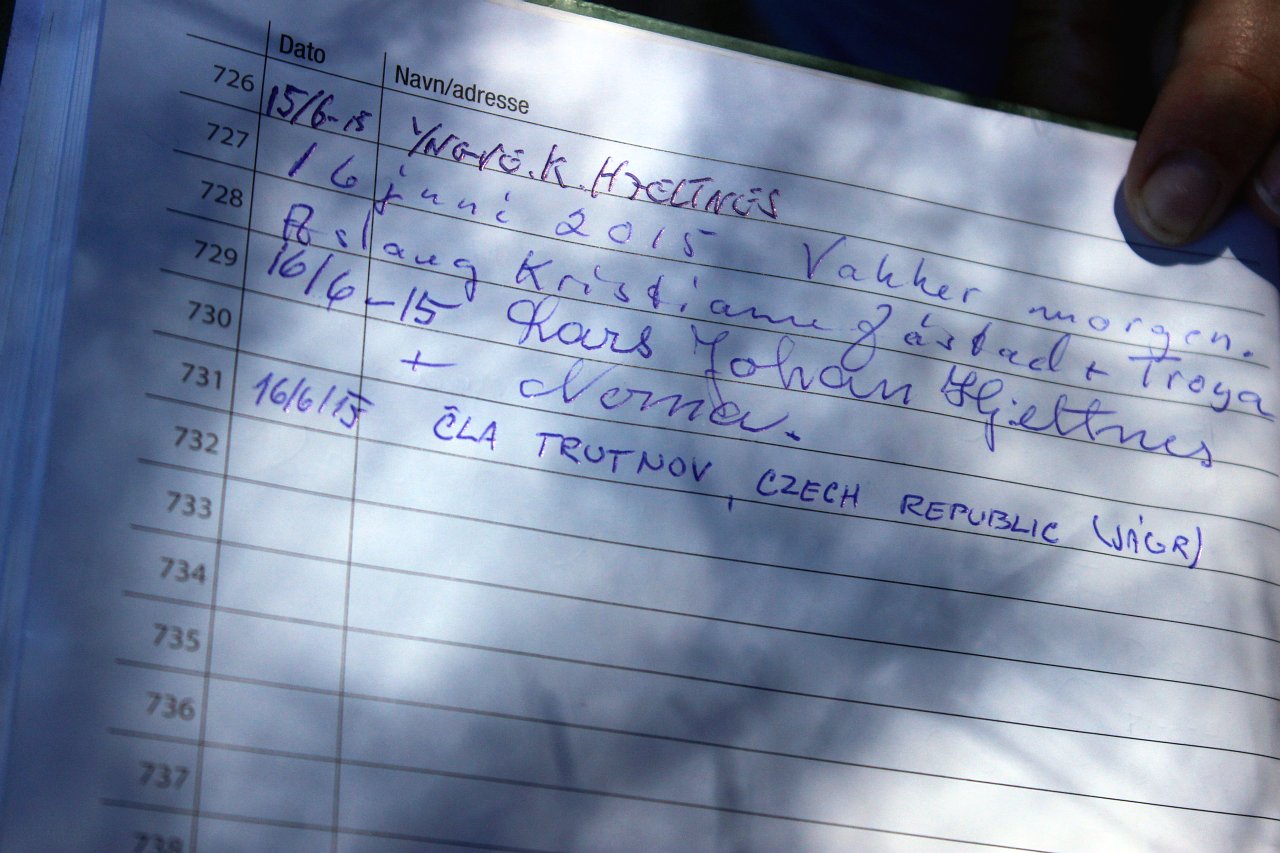 Dato Navn/adresse
726 15/6-15 YNGVE.K.HJELTNES
727 16 juni 2015 Vakker morgen.
728 Aslaug Kristiane Jåstad + Troya
729 16/6-15 Lars Johan Hjeltnes
730 + Norna.
731 16/6/15 ČLA TRUTNOV, CZECH REPUBLIC (JÁGR)
732
733
734
735
736
737
738